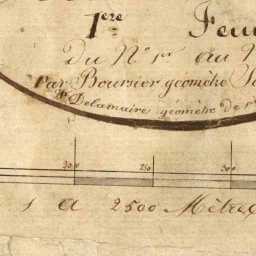 1ere Feui
Du N° 1er au N
Par Boursier géomètre
& Delamaire géomètre de 1
200 250 300
1 a 2500 Mètres